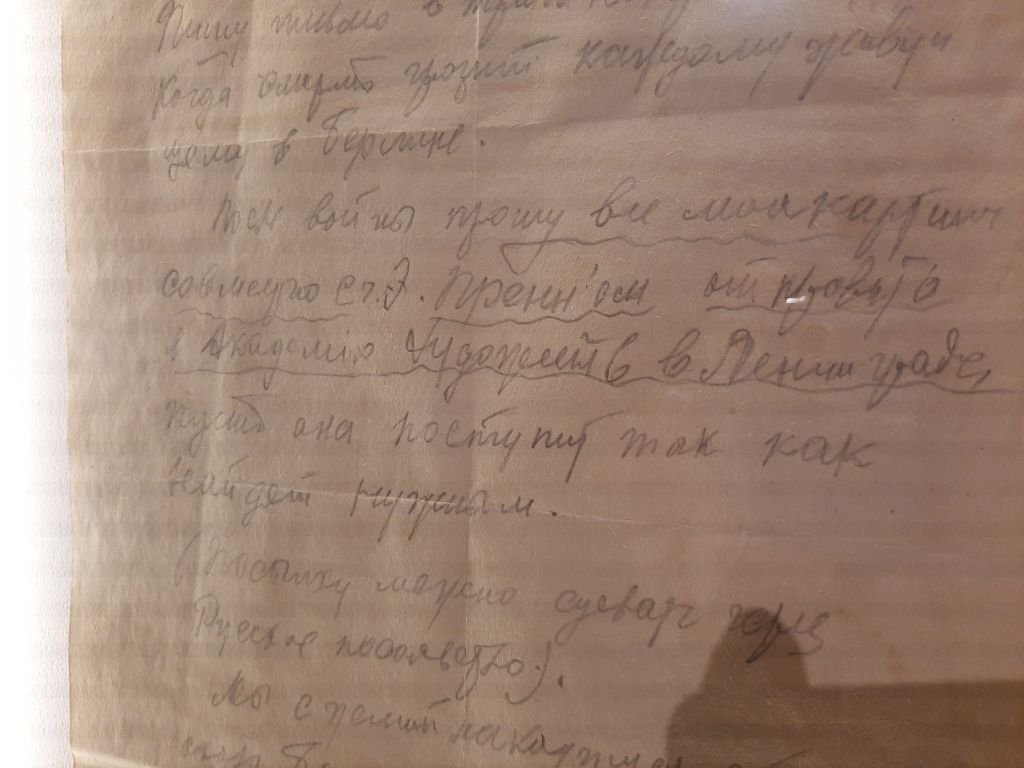 Пишу письмо в
когда смерть грозит каждому живущ
цему в Берлине.
войны прошу все мои картины
совместно с г. Э. отправить
в Академию Художеств в Ленинграде,
пусть она поступит так как
найдет нужным.
(Посылку можно сделать через
Русское посольство).
Мы с женой